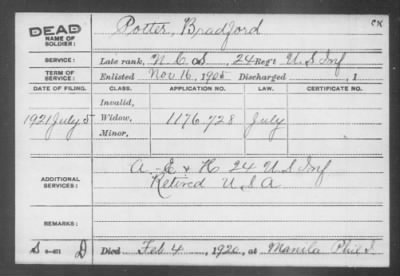 DEAD
NAME OF SOLDIER: Potter, Bradford CK
SERVICE: Late rank, N.C.S, 24 Reg't U S Inf
TERM OF SERVICE: Enlisted Nov 16, 1905 Discharged , 1
DATE OF FILING. CLASS. APPLICATION NO. LAW. CERTIFICATE NO.
Invalid,
1921 July 5 Widow, 1176 728 July
Minor,
ADDITIONAL SERVICES: A. E & H 24 U S Inf
Retired U S A
REMARKS:
Died Feb 4, 1920, at Manila Phil I.